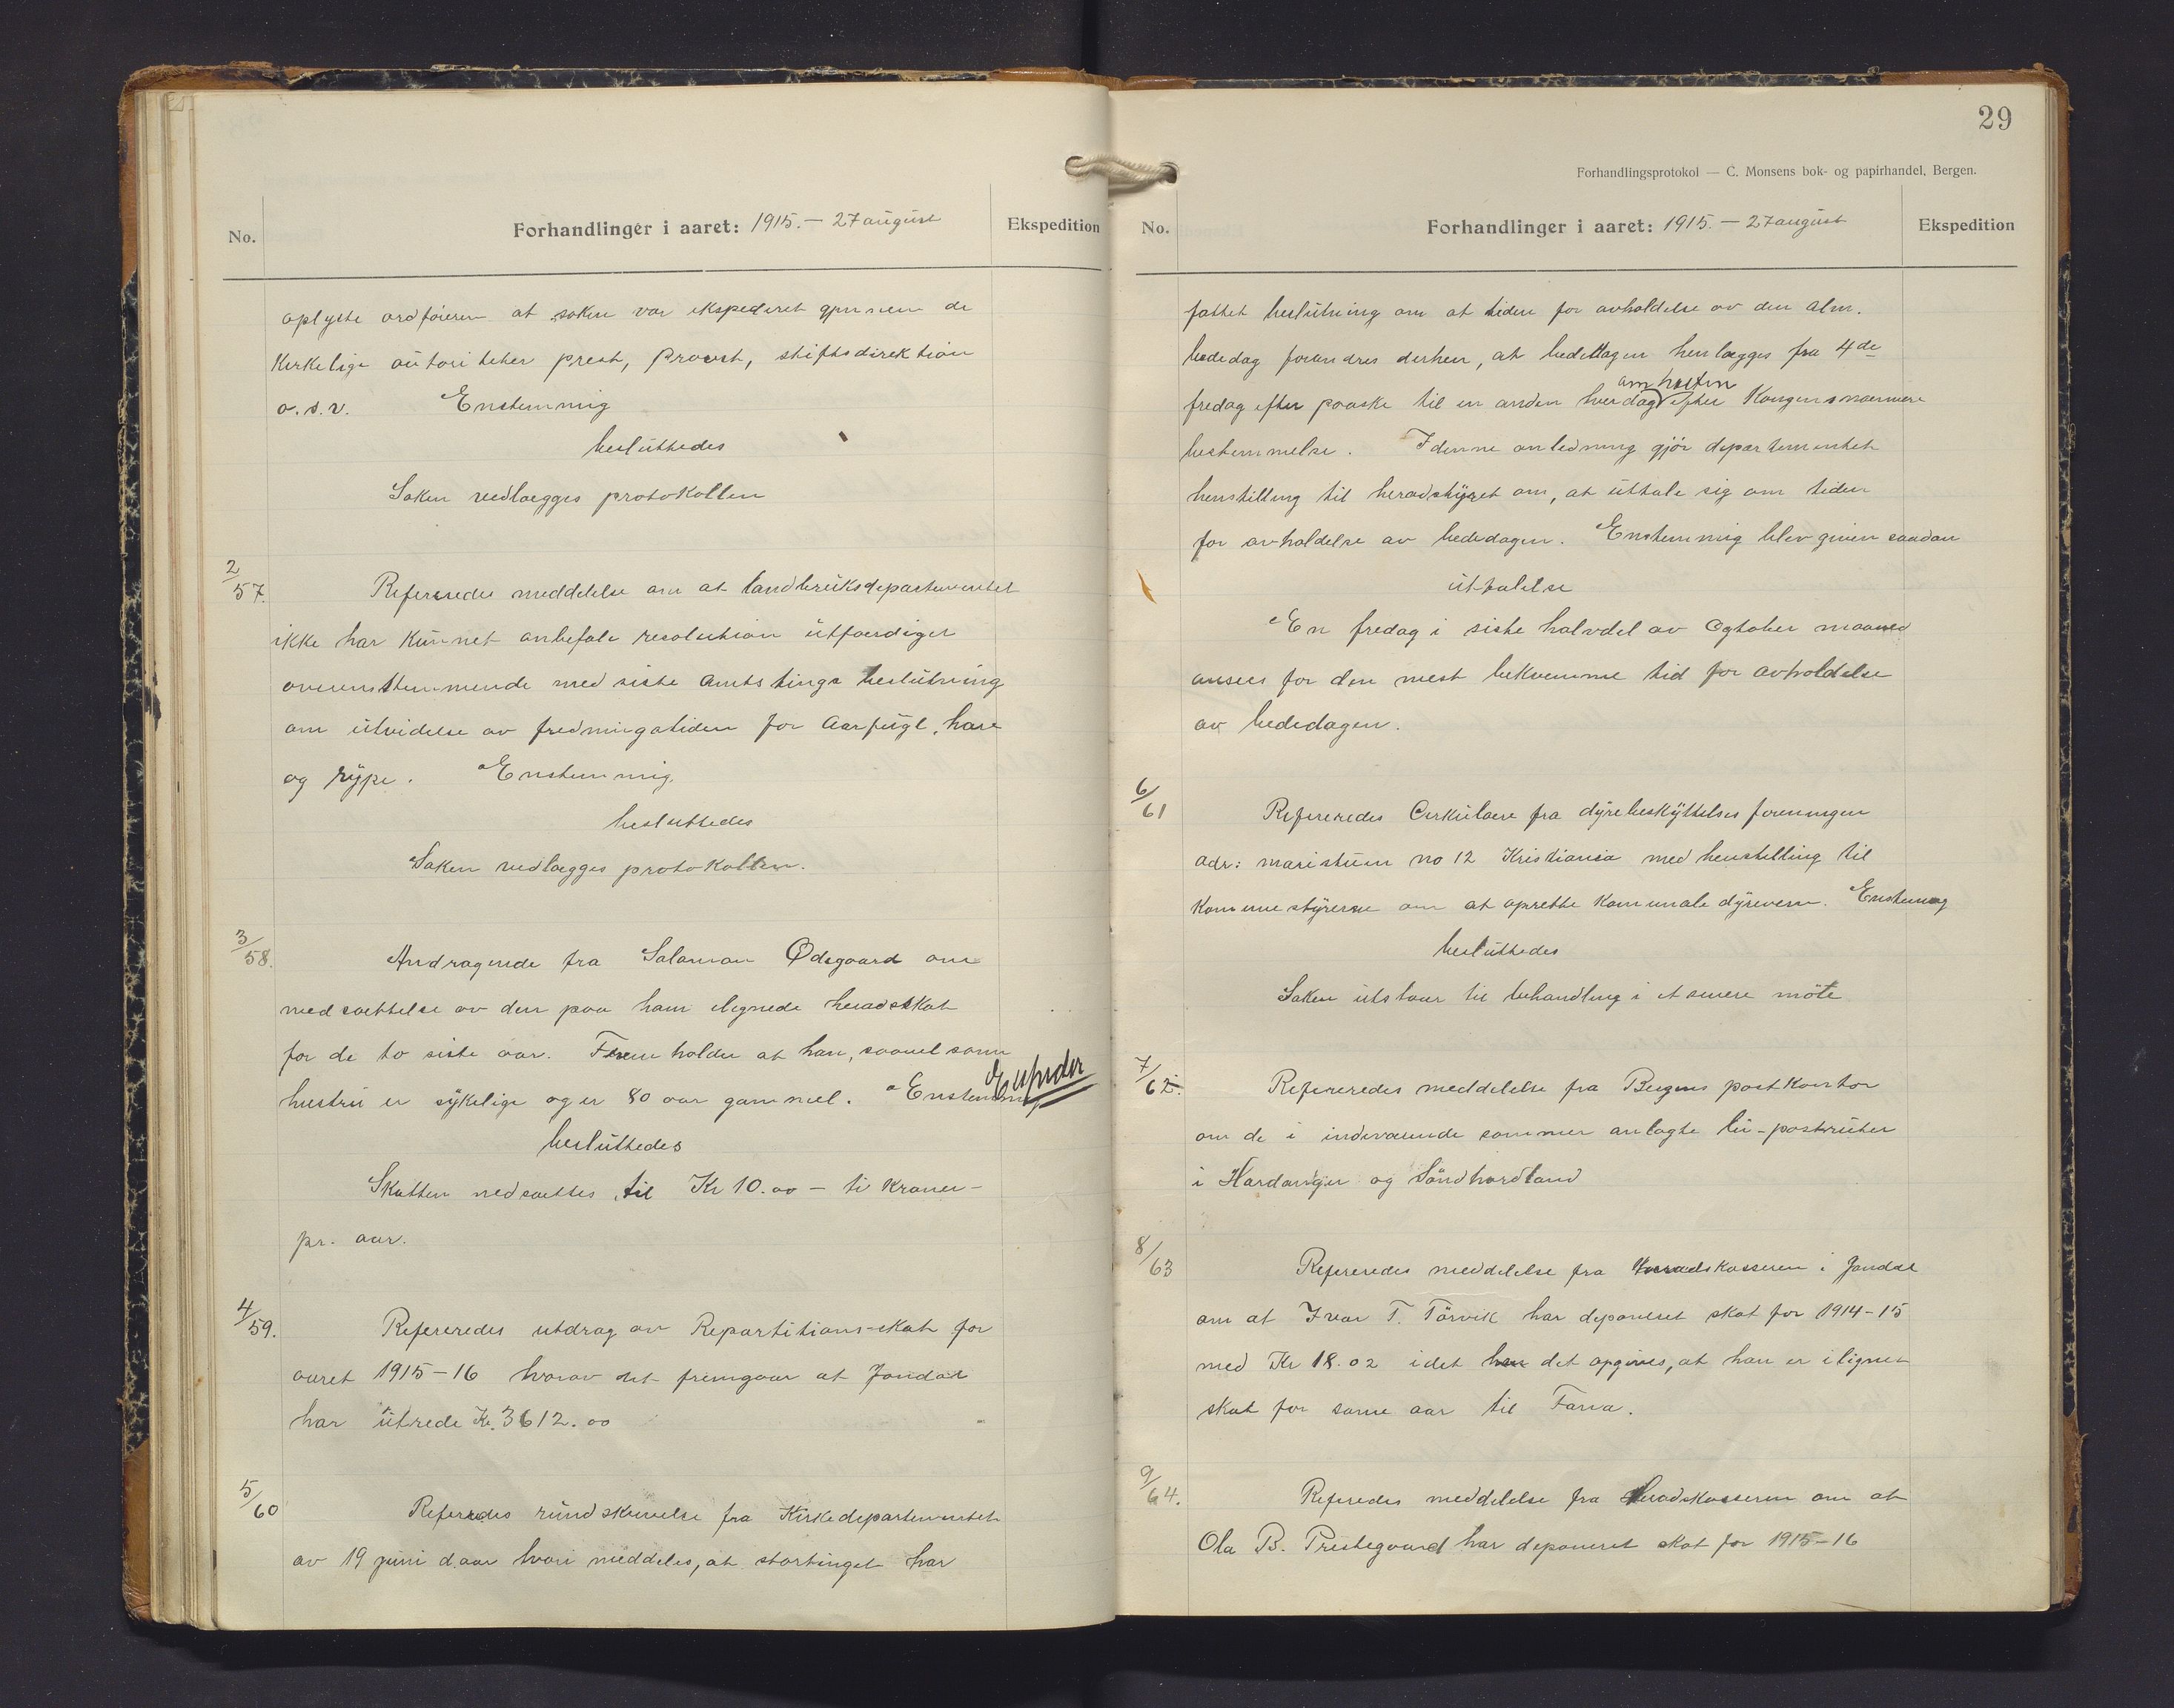 No.
Forhandlinger i aaret: 1915. — 27 august
Ekspedition
oplyste ordføieren at saken var ekspederet gjennem de
Kirkelige autoriteter prest, Provst, stiftsdirektion
o.s.v. Enstemmig
besluttedes
Saken vedlægges protokollen
2/57.
Refereredes meddelelse om at landbruksdepartementet
ikke har kunnet anbefale resolution utfærdiget
overensstemmende med siste amtstings beslutning
om utvidelse av fredningstiden for Aarfugl, hare
og rype. Enstemmig
besluttedes
Saken vedlægges protokollen.
3/58.
Andragende fra Salamon Ødegaard om
nedsættelse av den paa ham ilignede heradskat
for de to siste aar. Fremholder at han, saavel som
hustru er sykelige og er 80 aar gammel. Enstemmig
besluttedes
Skatten nedsættes til Kr 10.00 — ti kroner —
pr. aar.
4/59.
Refereredes utdrag av Repartitions-skat for
aaret 1915–16 hvorav det fremgaar at Jondal
har utrede Kr. 3612.00
5/60
Refereredes rundskrivelse fra Kirkedepartementet
av 19 juni d.aar hvori meddeles, at stortinget har
29
Forhandlingsprotokol — C. Monsens bok- og papirhandel, Bergen.
No.
Forhandlinger i aaret: 1915. — 27 august
Ekspedition
fattet beslutning om at tiden for avholdelse av den alm.
bededag forandres derhen, at bededagen henlægges fra 4de
om høsten
fredag efter paaske til en anden hverdag efter Kongens nærmere
bestemmelse. I denne anledning gjør departementet
henstilling til heradstyret om, at uttale sig om tiden
for avholdelse av bededagen. Enstemmig blev given saadan
uttalelse
En fredag i siste halvdel av Ogtober maaned
ansees for den mest bekvemme tid for avholdelse
av bededagen.
6/61
Refereredes Cirkulære fra dyrebeskyttelses foreningen
adr: maristuen no 12 Kristiania med henstilling til
Kommunestyrerne om at oprette kommunale dyrevern. Enstemmig
besluttedes
Saken utstaar til behandling i et senere møte
7/62.
Refereredes meddelelse fra Bergens postkontor
om de i indeværende sommer anlagte bi-postruter
i Hardanger og Søndhordland
8/63
Refereredes meddelelse fra heradskasseren i Jondal
om at Ivar T. Tørvik har deponeret skat for 1914–15
med Kr 18.02 idet det opgives, at han er ilignet
skat for same aar til Fana.
9/64.
Referedes meddelelse fra heradskasseren om at
Ola B. Prestegaard har deponeret skat for 1915–16